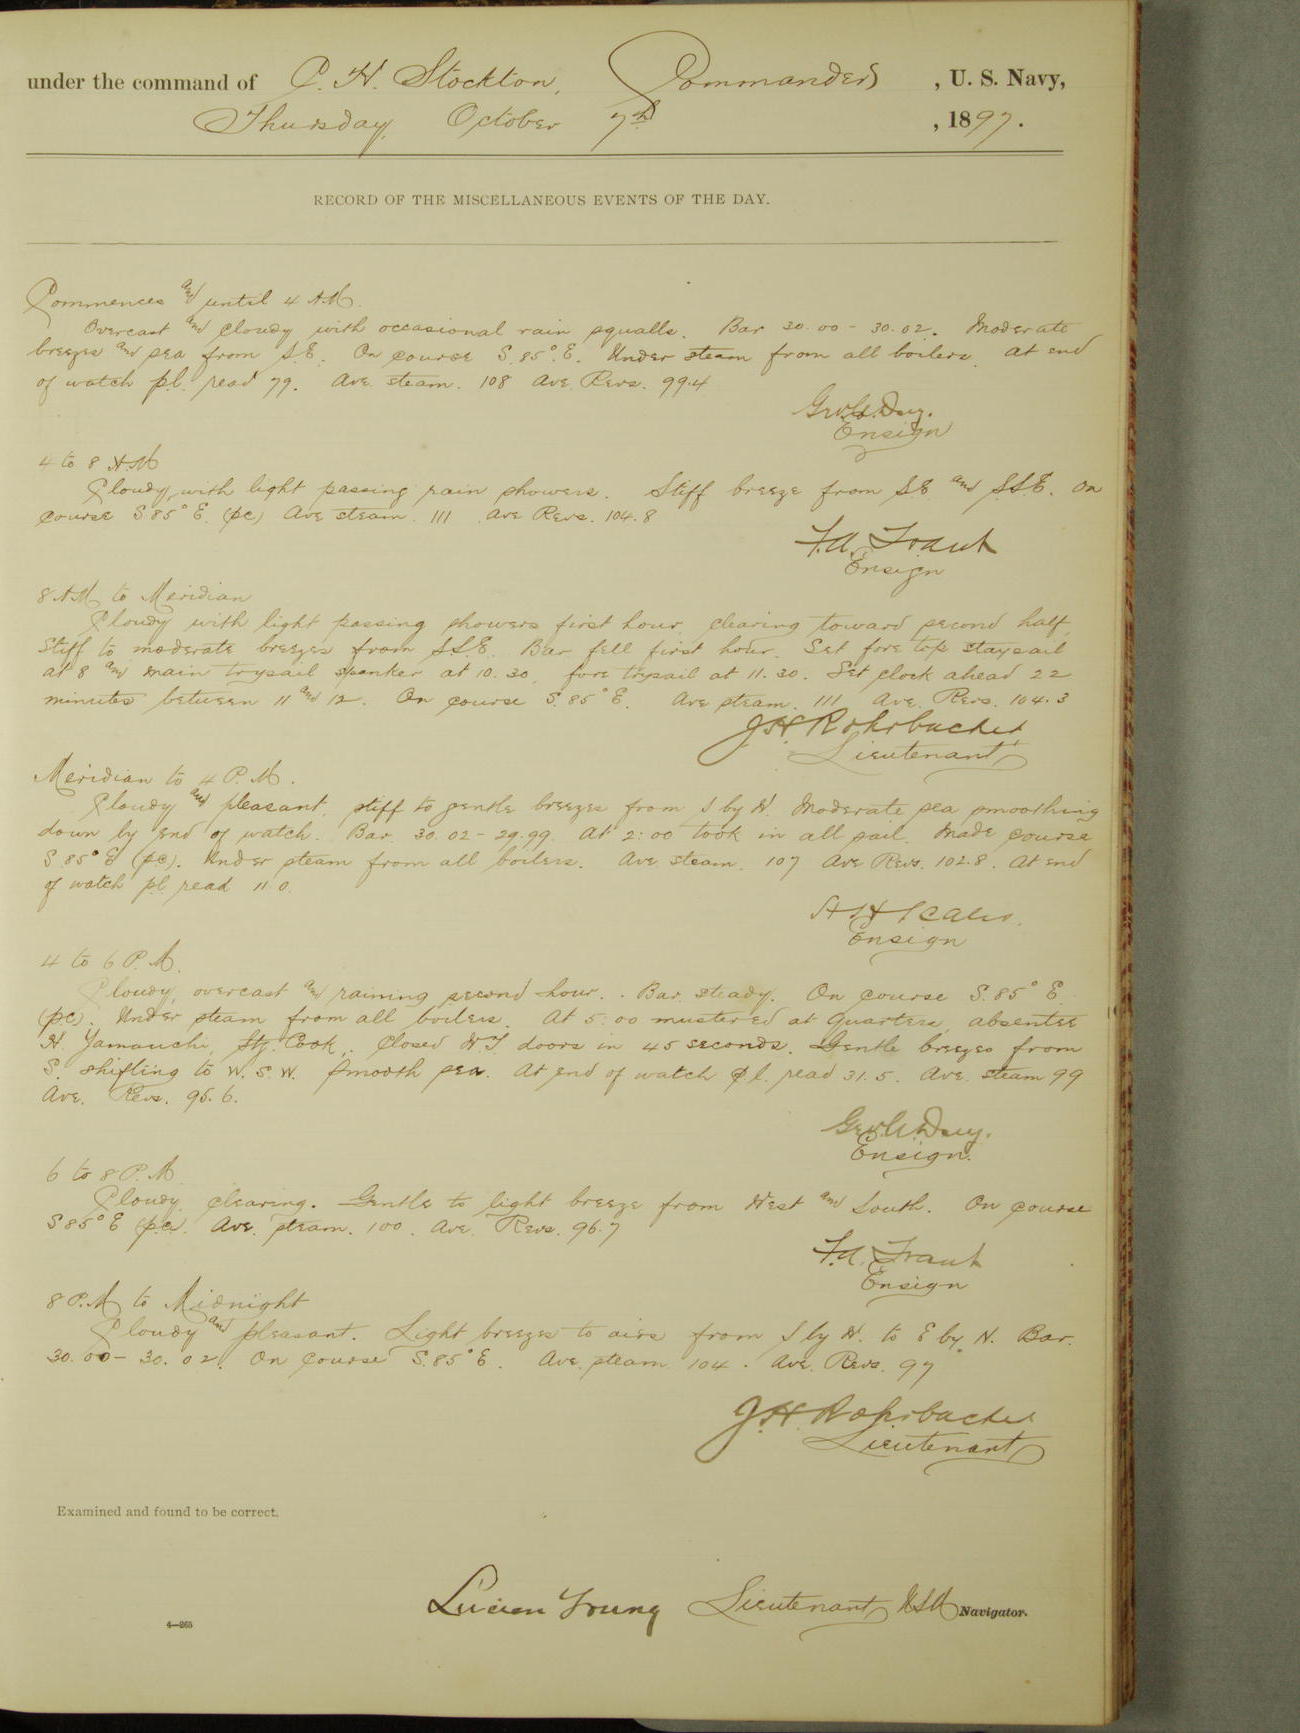 under the command of C. H. Stockton, Commander, U. S. Navy,
Thursday, October 7th, 1897.
RECORD OF THE MISCELLANEOUS EVENTS OF THE DAY.
Commences and until 4 A.M.
Overcast and cloudy with occasional rain squalls. Bar 30.00 - 30.02. Moderate
breezes and sea from S.E. On course S.85°.E. Under steam from all boilers. At end
of watch p.l. read 79. Ave. steam. 108 Ave Revs. 99.4
Geo. W. Day.
Ensign
4 to 8 A.M.
Cloudy, with light passing rain showers. Stiff breeze from SE and SSE. On
course S.85°E. (pc) Ave steam. 111 Ave Revs. 104.8
Ensign
8 AM to Meridian
Cloudy with light passing showers first hour, clearing toward second half.
Stiff to moderate breezes from SSE. Bar fell first hour. Set fore top staysail
at 8 and main trysail spanker at 10.30, fore trysail at 11.30. Set clock ahead 22
minutes between 11 and 12. On course S.85°E. Ave steam. 111 Ave. Revs. 104.3
J H Rohrbacher
Lieutenant
Meridian to 4 P.M.
Cloudy and pleasant, stiff to gentle breezes from S by W. Moderate sea smoothing
down by end of watch. Bar. 30.02 - 29.99. At 2:00 took in all sail. Made course
S 85° E (pc). Under steam from all boilers. Ave steam. 107 Ave Revs. 102.8. At end
of watch pl. read 11 0.
Ensign
4 to 6 P.M.
Cloudy, overcast and raining second hour. Bar. steady. On course S.85° E.
(pc). Under steam from all boilers. At 5:00 mustered at Quarters, absentee
H. Yamauchi, Stg. Cook,. Closed W.T. doors in 45 seconds. Gentle breezes from
S. shifting to W. S. W. Smooth sea. At end of watch p l. read 31.5. Ave. steam 99
Ave. Revs. 95.6.
Geo. W. Day.
Ensign.
6 to 8 P.M.
Cloudy, clearing. Gentle to light breeze from West and South. On course
S85°E (pc). Ave. steam. 100. Ave. Revs. 96.7
Ensign
8 P.M. to Midnight
Cloudy and pleasant. Light breezes to airs from S by W. to E by N. Bar.
30.00 - 30.02. On course S.85°E. Ave. steam 104. Ave. Revs. 97
J.H. Rohrbacher
Lieutenant
Examined and found to be correct.
Lucien Young Lieutenant USN Navigator.
4—265